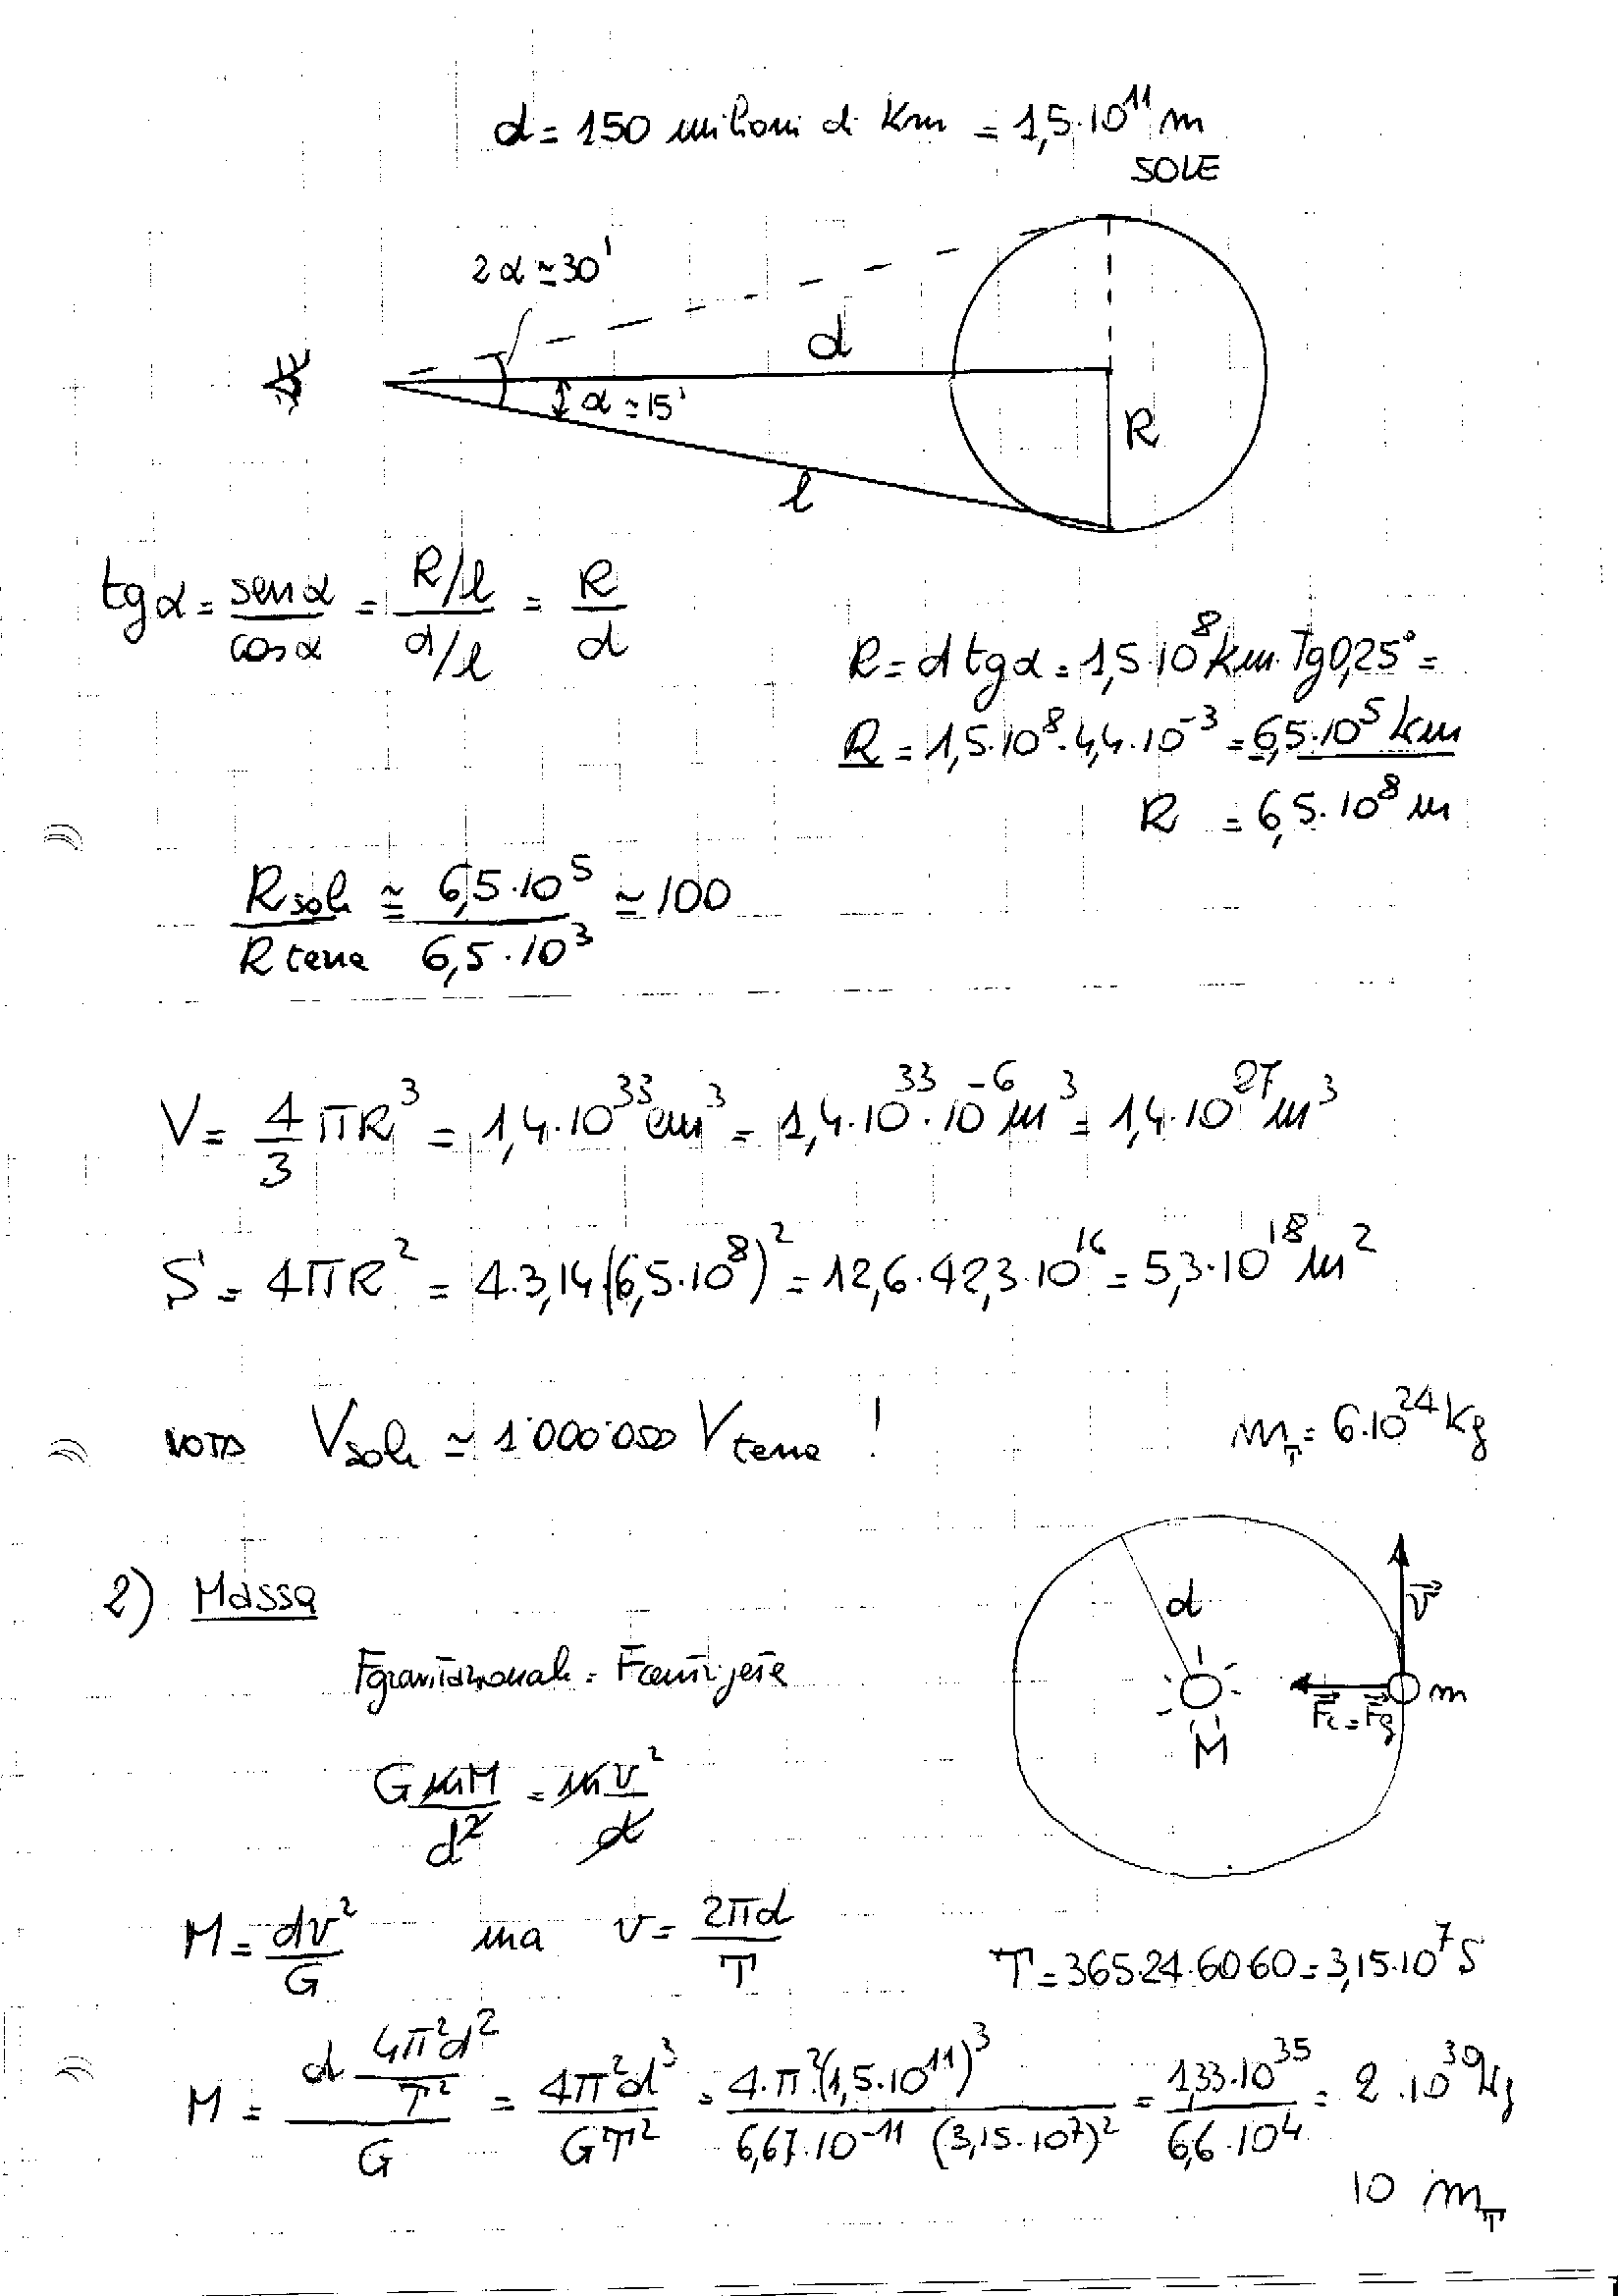 d = 150 milioni di Km = 1,5·10¹¹ m
SOLE
2α ≃ 30'
d
α ≃ 15'
R
l
tgα = senα/cosα = (R/l)/(d/l) = R/d
R = d tgα = 1,5·10⁸ km·Tg0,25° =
R = 1,5·10⁸·4,4·10⁻³ = 6,5·10⁵ km
R = 6,5·10⁸ m
Rsole/Rterra ≃ 6,5·10⁵/6,5·10³ ≃ 100
V = 4/3 πR³ = 1,4·10³³ cm³ = 1,4·10³³·10⁻⁶ m³ = 1,4·10²⁷ m³
S = 4πR² = 4·3,14·(6,5·10⁸)² = 12,6·42,3·10¹⁶ = 5,3·10¹⁸ m²
NOTA Vsole ≃ 1'000'000 Vterra !
m_T = 6·10²⁴ kg
2) Massa
d
v⃗
Fgravitazionale = Fcentripeta
m
F⃗c = F⃗g
M
G mM/d² = mv²/d
M = dv²/G ma v = 2πd/T
T = 365·24·60·60 = 3,15·10⁷ S
M = (d 4π²d²/T²)/G = 4π²d³/GT² = 4·π²·(1,5·10¹¹)³/6,67·10⁻¹¹ (3,15·10⁷)² = 1,33·10³⁵/6,6·10⁴ = 2·10³⁰ kg
10 m_T